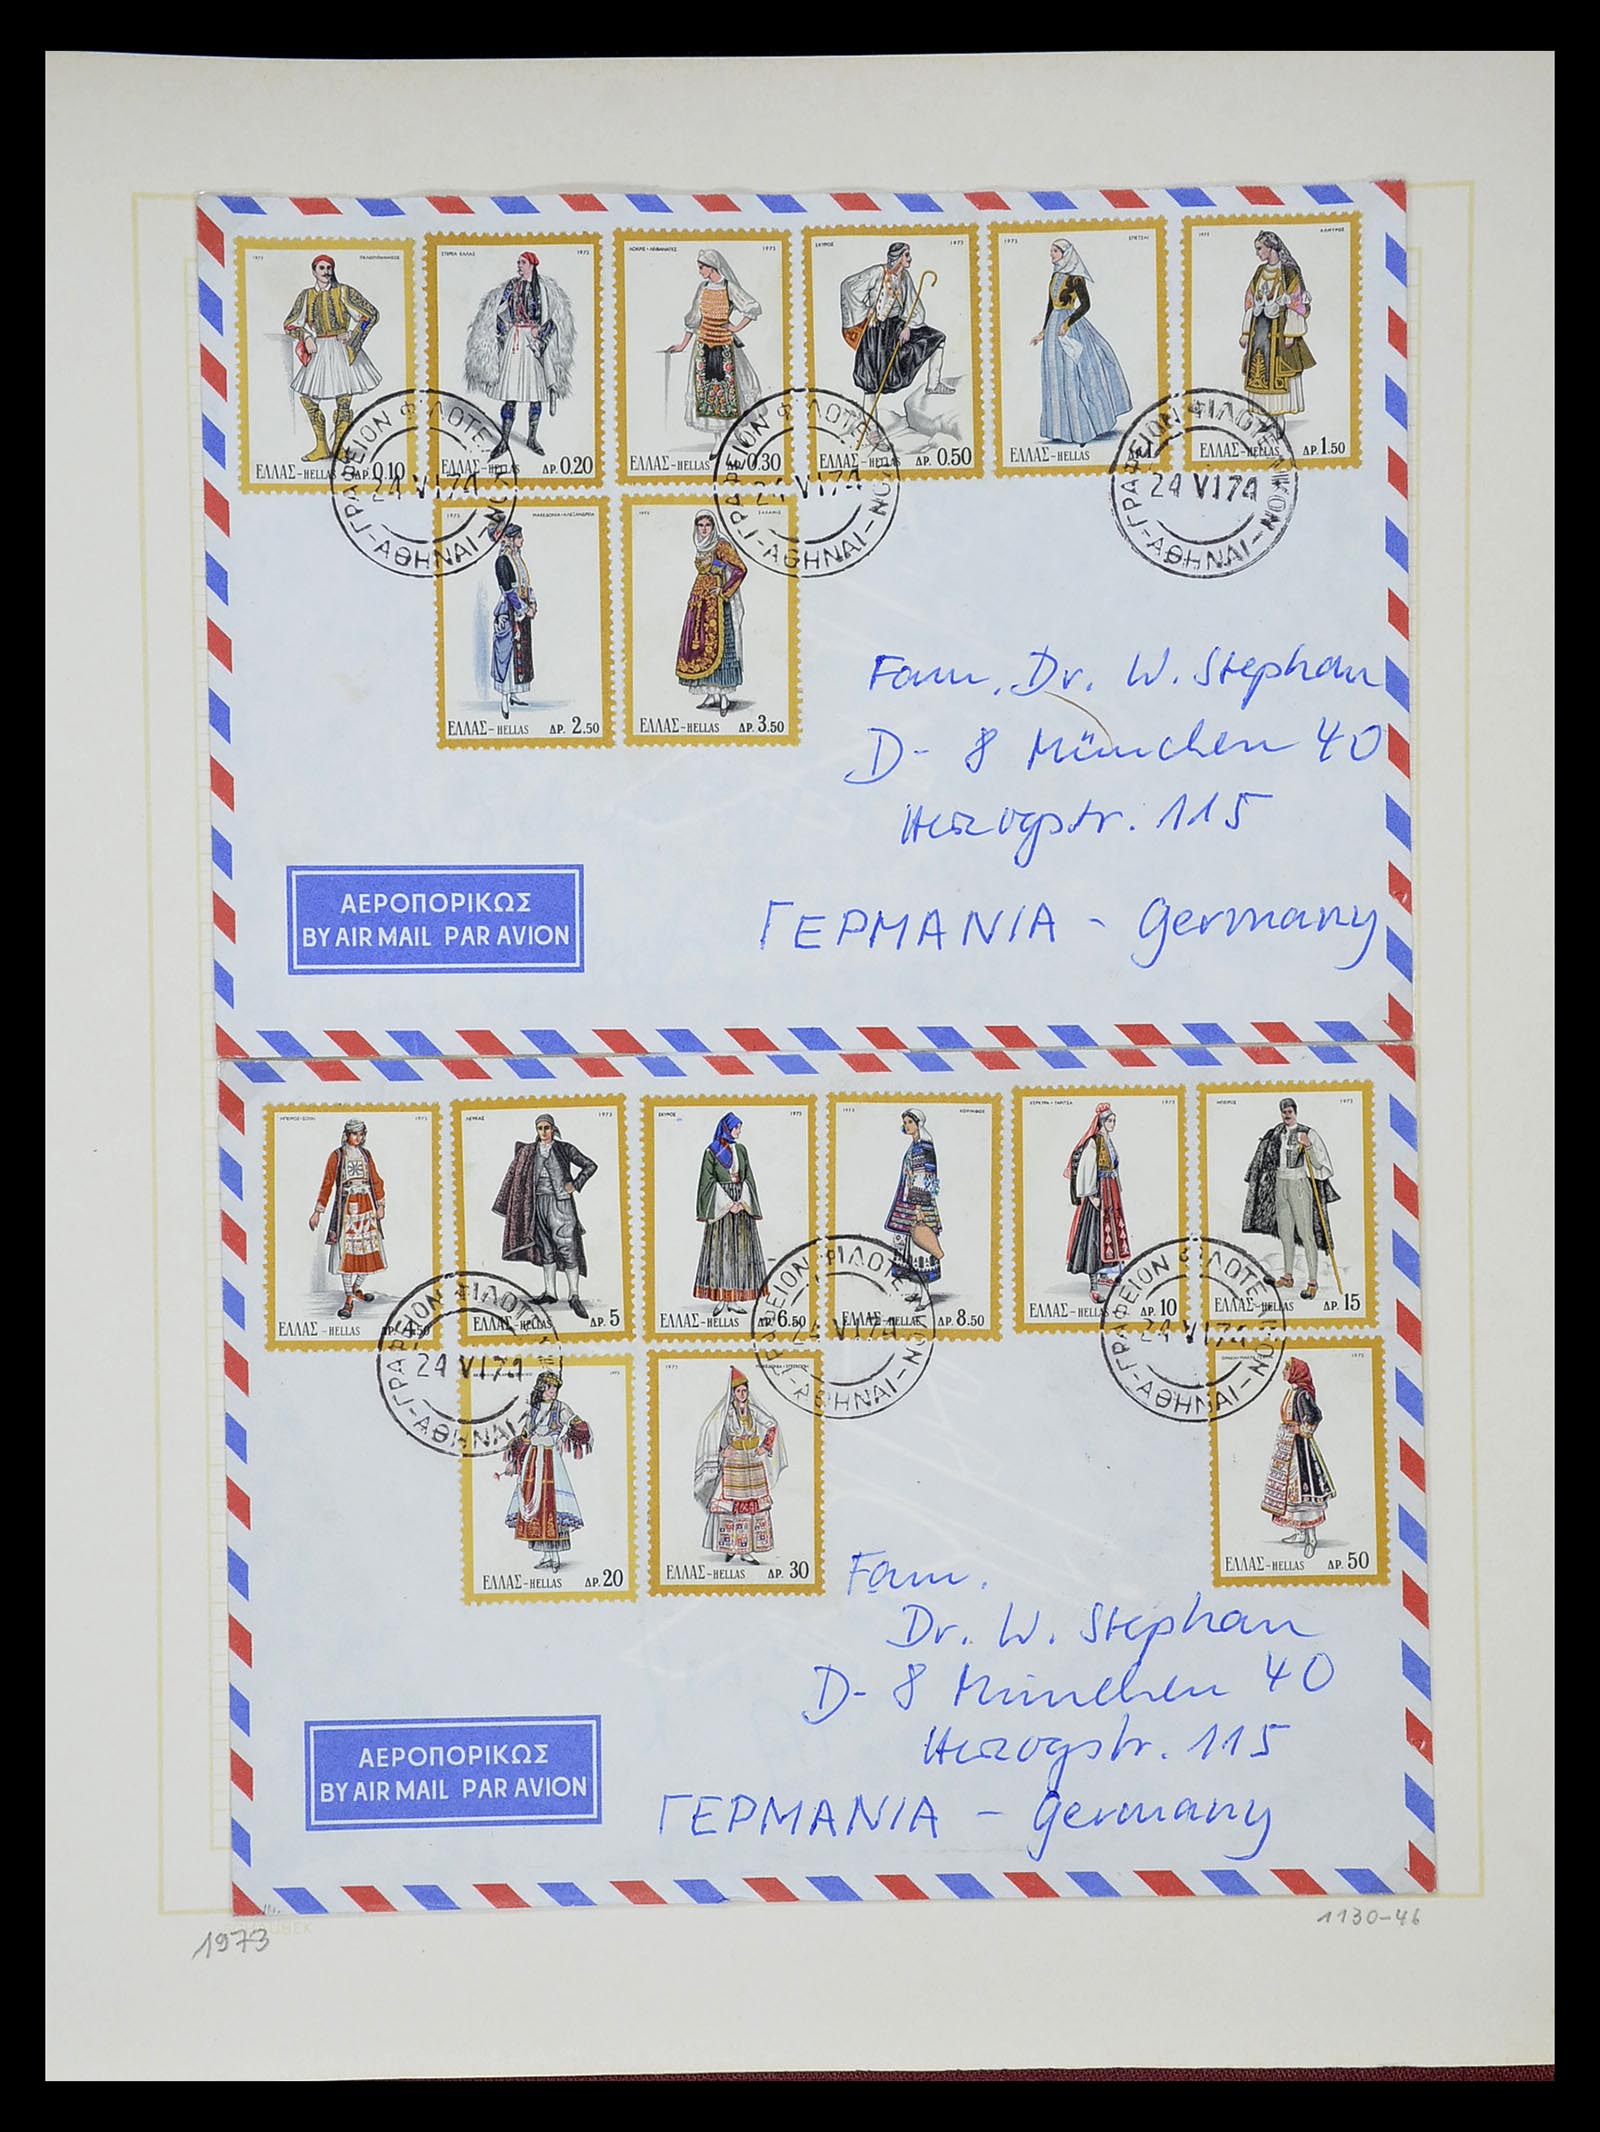 1973 ΠΕΛΟΠΟΝΝΗΣΟΣ
ΕΛΛΑΣ-HELLAS ΔΡ.0.10
ΣΤΕΡΕΑ ΕΛΛΑΣ 1973
ΕΛΛΑΣ-HELLAS ΔΡ.0.20
1973
ΕΛΛΑΣ-HELLAS ΔΡ.0.30
ΣΚΥΡΟΣ 1973
ΕΛΛΑΣ-HELLAS ΔΡ.0.50
1973 ΣΠΕΤΣΑΙ
ΕΛΛΑΣ-HELLAS ΔΡ.1
1973 ΑΛΜΥΡΟΣ
ΕΛΛΑΣ-HELLAS ΔΡ.1.50
ΓΡΑΦΕΙΟΝ ΦΙΛΟΤΕ
24 VI 74
-ΑΘΗΝΑΙ-
ΓΡΑΦΕΙΟΝ ΦΙΛΟΤΕ
24 VI 74
-ΑΘΗΝΑΙ-
ΓΡΑΦΕΙΟΝ ΦΙΛΟΤΕΛΙΚΟΝ
24 VI 74
-ΑΘΗΝΑΙ-
1973 ΜΑΚΕΔΟΝΙΑ-ΑΛΕΞΑΝΔΡΕΙΑ
ΕΛΛΑΣ-HELLAS ΔΡ. 2.50
1973 ΣΑΛΑΜΙΣ
ΕΛΛΑΣ-HELLAS ΔΡ.3.50
Fam. Dr. W. Stephan
D-8 München 40
Herzogstr. 115
ΓΕΡΜΑΝΙΑ - Germany
ΑΕΡΟΠΟΡΙΚΩΣ
BY AIR MAIL PAR AVION
ΗΠΕΙΡΟΣ-ΣΟΥΛΙ 1973
ΕΛΛΑΣ-HELLAS ΔΡ.4.50
ΛΕΥΚΑΣ 1973
ΕΛΛΑΣ-HELLAS ΔΡ.5
ΣΚΥΡΟΣ 1973
ΕΛΛΑΣ-HELLAS ΔΡ.6.50
1973 ΚΟΡΙΝΘΟΣ
ΕΛΛΑΣ-HELLAS ΔΡ.8.50
ΚΕΡΚΥΡΑ-ΓΑΡΙΤΣΑ 1973
ΕΛΛΑΣ-HELLAS ΔΡ.10
ΗΠΕΙΡΟΣ 1973
ΕΛΛΑΣ-HELLAS ΔΡ.15
ΓΡΑΦΕΙΟΝ ΦΙΛΟΤΕ
24 VI 74
-ΑΘΗΝΑΙ-
ΓΡΑΦΕΙΟΝ ΦΙΛΟΤΕ
24 VI 74
-ΑΘΗΝΑΙ-
ΓΡΑΦΕΙΟΝ ΦΙΛΟΤΕ
24 VI 74
-ΑΘΗΝΑΙ-
1973
ΕΛΛΑΣ-HELLAS ΔΡ.20
1973
ΕΛΛΑΣ-HELLAS ΔΡ.30
1973
ΕΛΛΑΣ-HELLAS ΔΡ.50
Fam.
Dr. W. Stephan
D-8 München 40
Herzogstr. 115
ΓΕΡΜΑΝΙΑ - Germany
ΑΕΡΟΠΟΡΙΚΩΣ
BY AIR MAIL PAR AVION
1973
1130-46